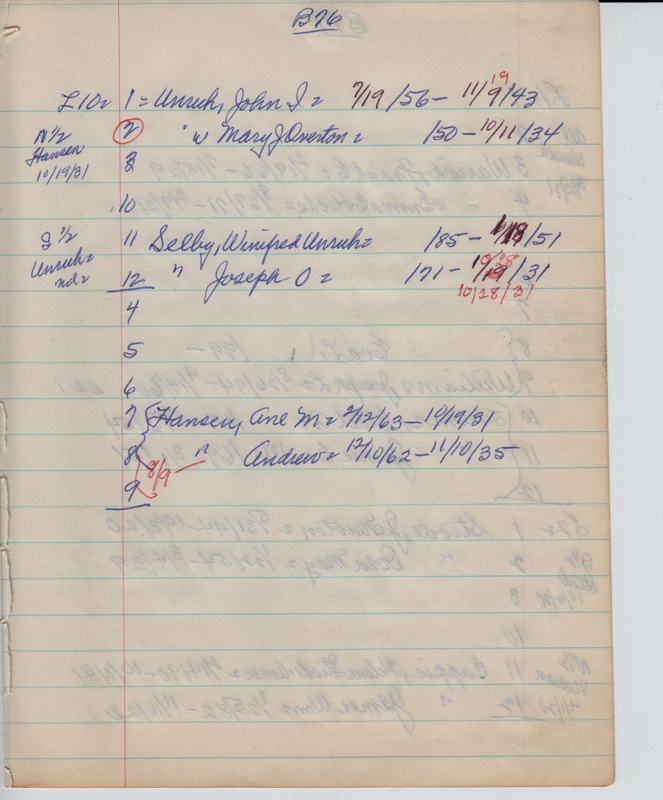 B76
L10= 1 = Unruh, John I = 7/19/56 - 11/9/43
19
N 1/2 2 " w Mary J Overton = /50 - 10/11/34
Hansen 3
10/19/31
10
S 1/2 11 Selby, Winifred Unruh = /85 - 1/18/51
Unruh =
nd = 12 " Joseph O = /71 - /31
10/28/31
4
5
6
7 { Hansen, Ane M = 2/12/63 - 10/19/31
8 " Andrew = 12/10/62 - 11/10/35
8/9
9